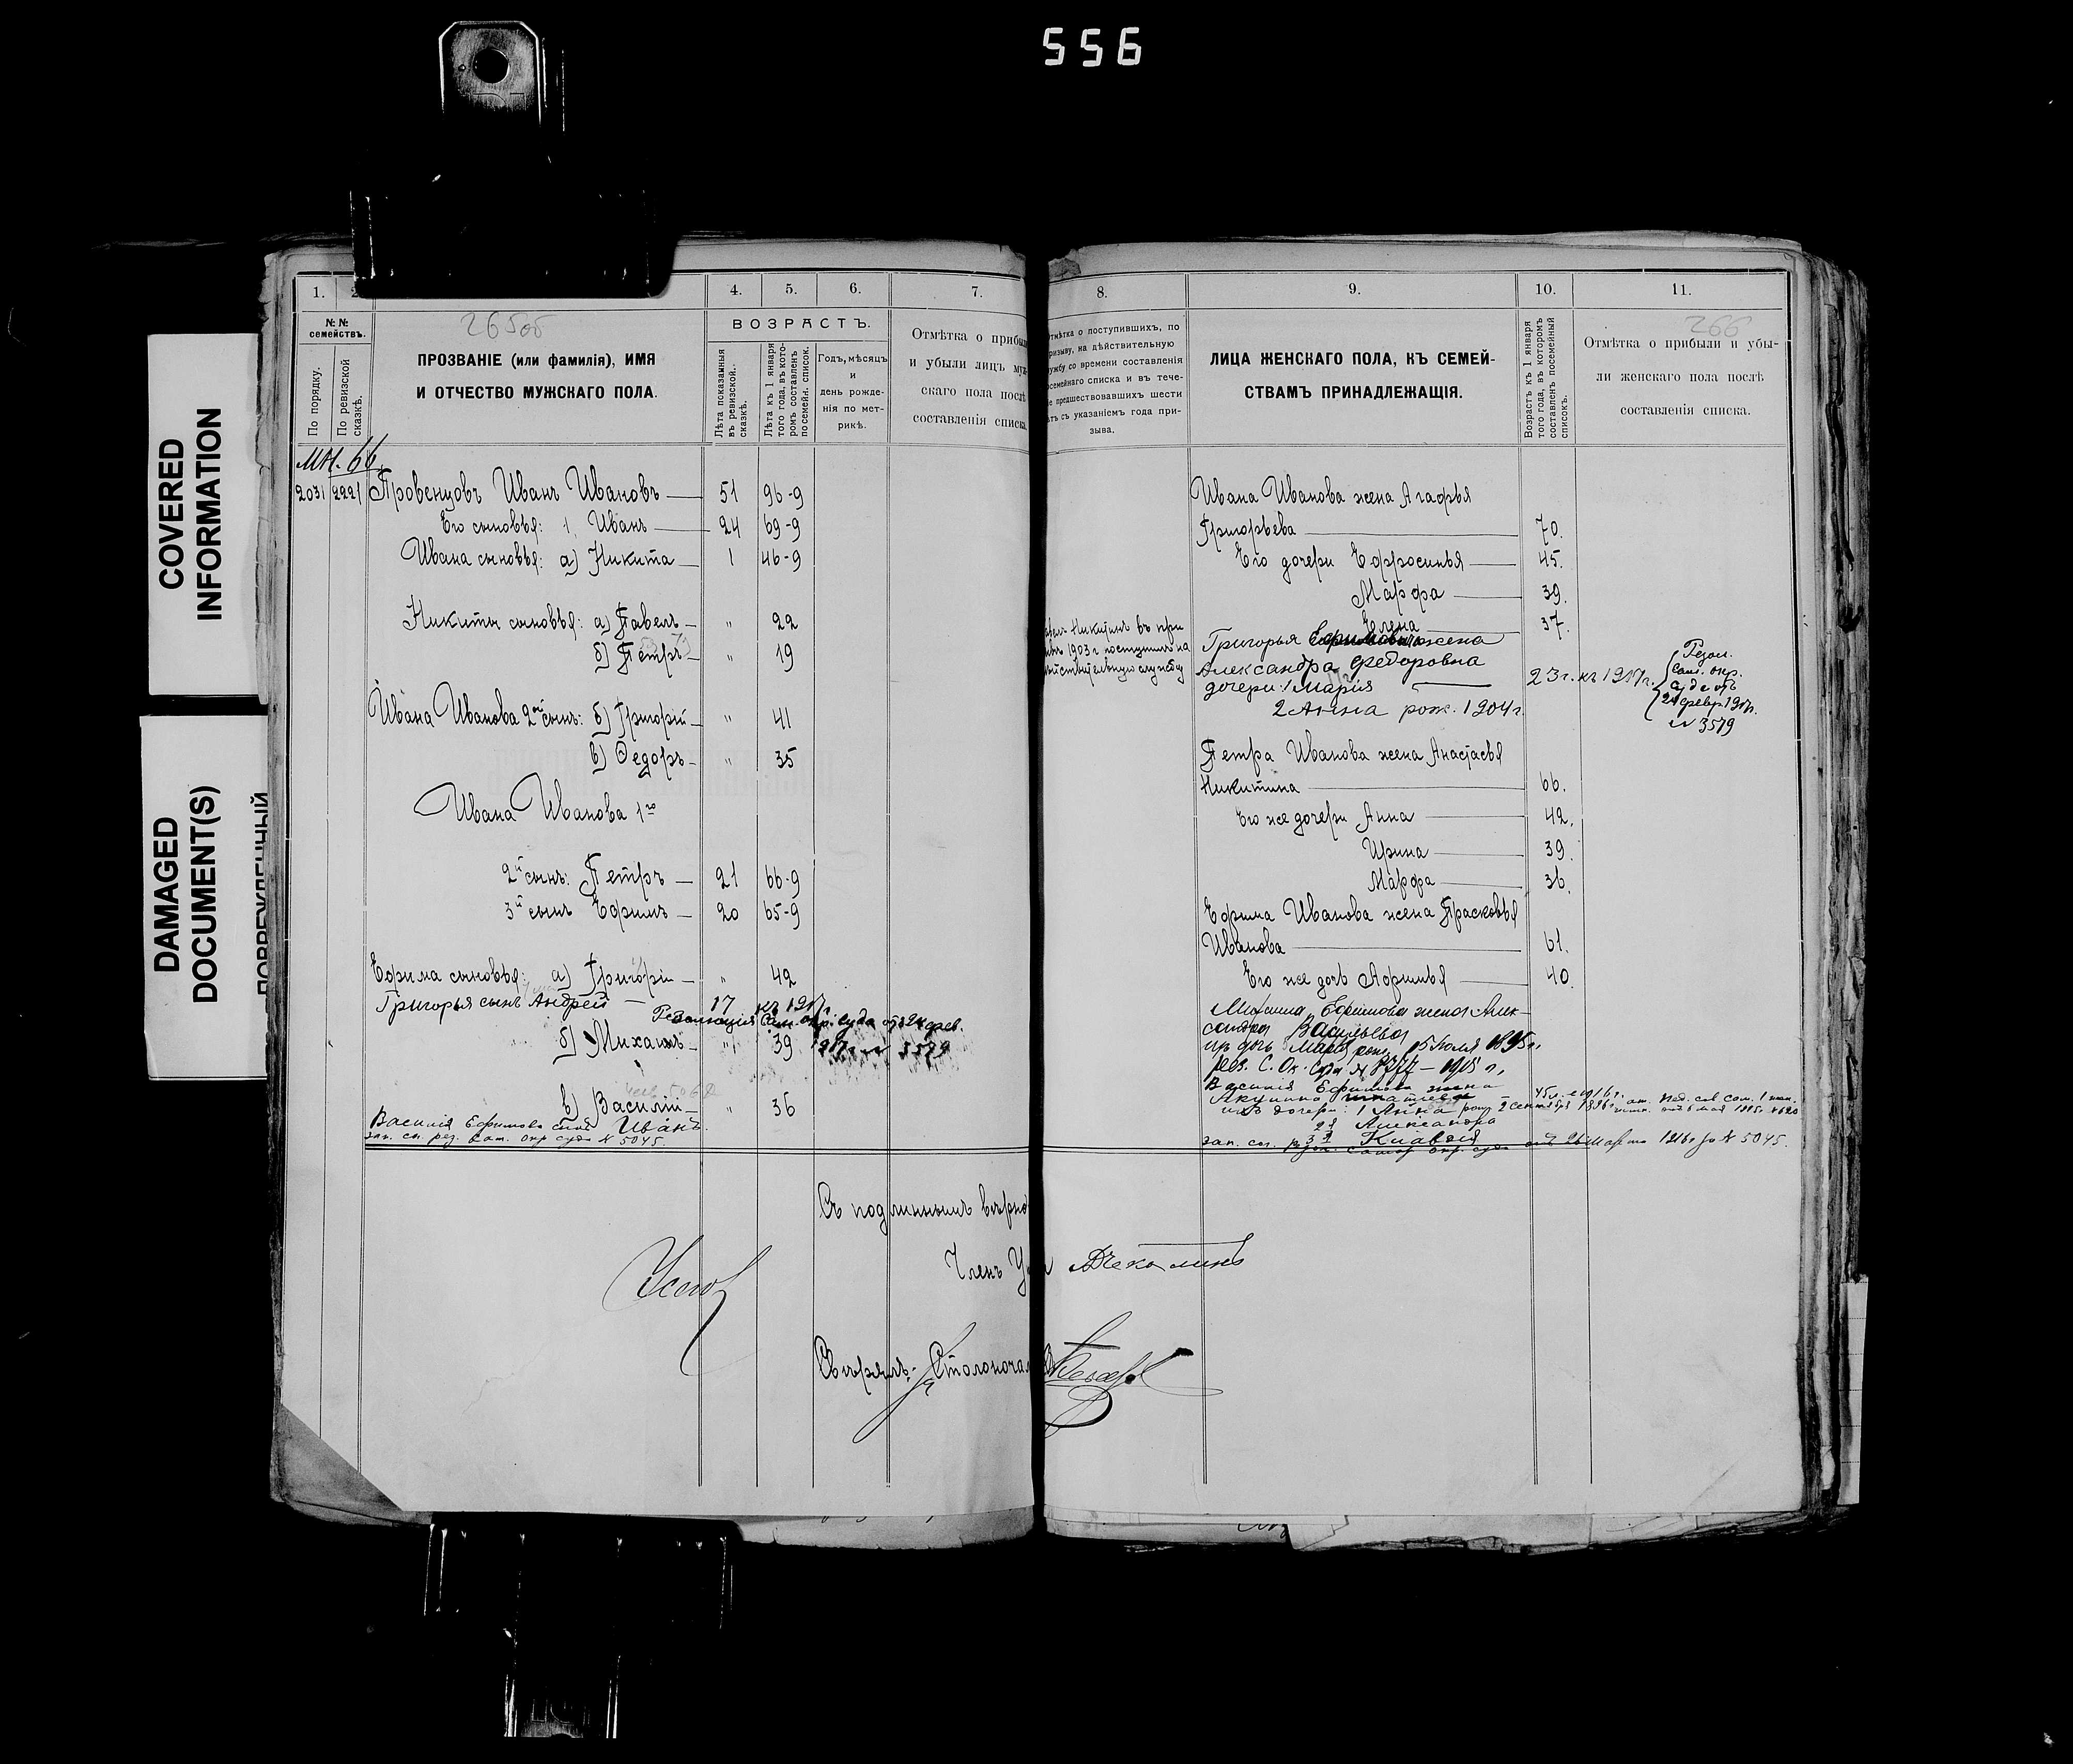 556
COVERED
INFORMATION
DAMAGED
DOCUMENT(S)
1.
4.
5.
6.
7.
№ №
семействъ.
По порядку.
По ревизской
сказкѣ.
265об
ПРОЗВАНІЕ (или фамилія), ИМЯ
И ОТЧЕСТВО МУЖСКАГО ПОЛА.
ВОЗРАСТЪ.
Лѣта показанныя
въ ревизской
сказкѣ.
Лѣта къ 1 января
того года, въ кото-
ромъ составленъ
посемейн. список.
Годъ, мѣсяцъ
и
день рожде-
нія по мет-
рикѣ.
Отмѣтка о прибыли
и убыли лицъ муж-
скаго пола послѣ
составленія списка.
МН. 66
2031 2221 Провенцовъ Иванъ Ивановъ — 51 96-9
Его сыновья: 1, Иванъ — 24 69-9
Ивана сыновья: а) Никита — 1 46-9
Никиты сыновья: а) Павелъ — " 22
б) Петръ — " 19
Ивана Иванова 2ой сынъ: б) Григорій — " 41
в) Ѳедоръ — " 35
Ивана Иванова 1го
2й сынъ: Петръ — 21 66-9
3й сынъ Ефимъ — 20 65-9
Ефима сыновья: а) Григорій — " 42
Григорья сынъ Андрей — 17 къ 1917г.
Резолюція Сам. окр. суда отъ 24 фев.
б) Михаилъ — " 39 1917г № 3579
в) Василій — " 36
Василія Ефимова сынъ Иванъ.
зап. сп. рез. Сам. окр суда № 5045.
Съ подлиннымъ вѣрно
Членъ
Свѣрялъ: Столоначал
8.
9.
10.
11.
266
тмѣтка о поступившихъ, по
ризыву, на дѣйствительную
ужбу со времени составленія
осемейнаго списка и въ тече-
е предшествовавшихъ шести
ѣтъ съ указаніемъ года при-
зыва.
ЛИЦА ЖЕНСКАГО ПОЛА, КЪ СЕМЕЙ-
СТВАМЪ ПРИНАДЛЕЖАЩІЯ.
Возрастъ къ 1 января
того года, въ которомъ
составленъ посемейный
списокъ.
Отмѣтка о прибыли и убы-
ли женскаго пола послѣ
составленія списка.
Ивана Иванова жена Агафья
Григорьева — 70.
Его дочери Ефросинья — 45.
Марфа — 39.
Елена — 37.
авелъ Никитинъ въ при
ывъ 1903 г поступилъ на
ѣйствительную службу
Григорья Ефимовича жена
Александра Федоровна 23 г. къ 1917г.
дочери: 1 Марія —
2 Анна рож. 1904 г.
Резол.
Сам. окр.
суда отъ
24 февр. 1917г.
№ 3579
Петра Иванова жена Анастасья
Никитина — 66.
Его же дочери Анна — 42.
Ирина — 39.
Марфа — 36.
Ефима Иванова жена Прасковья
Иванова — 61.
Его же дочь Афимья — 40.
Михаила Ефимова жена Алек-
сандра Васильева
их дочь Марія рож. 15 Июля 1895 г.
рез. С. Ок. Суда
Василія Ефимова жена
Акулина Игнатьева — 45 л. к 1916 г.
ихъ дочери: 1 Анна рож 2 Сентября 1896 г.
2я Александра
3я Клавдія
зап. сог. рез. Самар окр. суда отъ 26 марта 1916 г за № 5045.